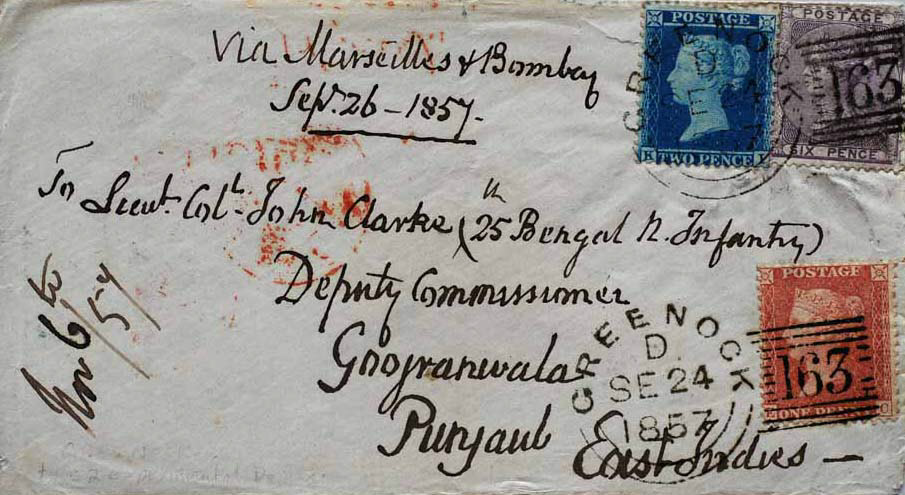 Via Marseilles & Bombay
Sepr. 26 - 1857.
To Lieut. Colt. John Clarke (25th Bengal N. Infantry)
Deputy Commissioner
Goojranwala
Punjaub
East Indies —
Nov 6th/57
POSTAGE
TWO PENCE
K
POSTAGE
SIX PENCE
163
GREENOCK
D
SE 24
7
POSTAGE
ONE PEN
163
GREENOCK
D.
SE 24
1857